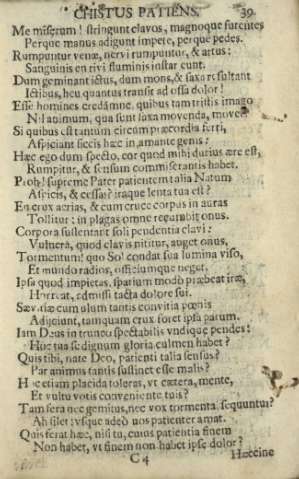 CHISTUS PATIENS. 39.
Me miserum! stringunt clavos, magnoque furentes
Perque manus adigunt impete, perque pedes.
Rumpuntur venæ, nervi rumpuntur, & artus:
Sanguinis en rivi fluminis instar eunt.
Dum geminant ictus, dum mons, & saxa resultant
Ictibus, heu quantus transit ad ossa dolor!
Esse homines credámne, quibus tam tristis imago
Nil animum, qua sunt saxa movenda, movet?
Si quibus est tantum circum præcordia ferri,
Aspiciant siccis hæc in amante genis?
Hæc ego dum specto, cor quod mihi durius ære est,
Rumpitur, & sensum commiserantis habet.
Proh! supreme Pater patientem talia Natum
Aspicis, & cessas? iraque lenta tua est?
En crux acrias, & cum cruce corpus in auras
Tollitur: in plagas omne recumbit onus.
Corpora sustentant soli pendentia clavi:
Vulnera, quod clavis nititur, auget onus,
Tormentum! quo Sol condat sua lumina viso,
Et mundo radios, officiumque neget.
Ipsa quod impietas, spatium modò præbeat iræ,
Horreat, admissi tacta dolore sui.
Sævitiæ cumulum tantis convitia pœnis
Adijciunt, tamquam crux foret ipsa parum.
Iam Deus in trunco spectabilis undique pendes!
Huc tua se dignum gloria culmen habet?
Quis tibi, nate Deo, patienti talia sensus?
Par animus tantis sustinet esse malis?
Hæc etiam placida toleras, ut cætera, mente,
Et vultu votis conveniente tuis?
Tam sera nec gemitus, nec vox tormenta sequuntur?
Ah silet: usque adeò uos patienter amat.
Quis ferat hæc, nisi tu, cuius patientia finem
Non habet, ut finem non habet ipse dolor?
C 4 Hæccine